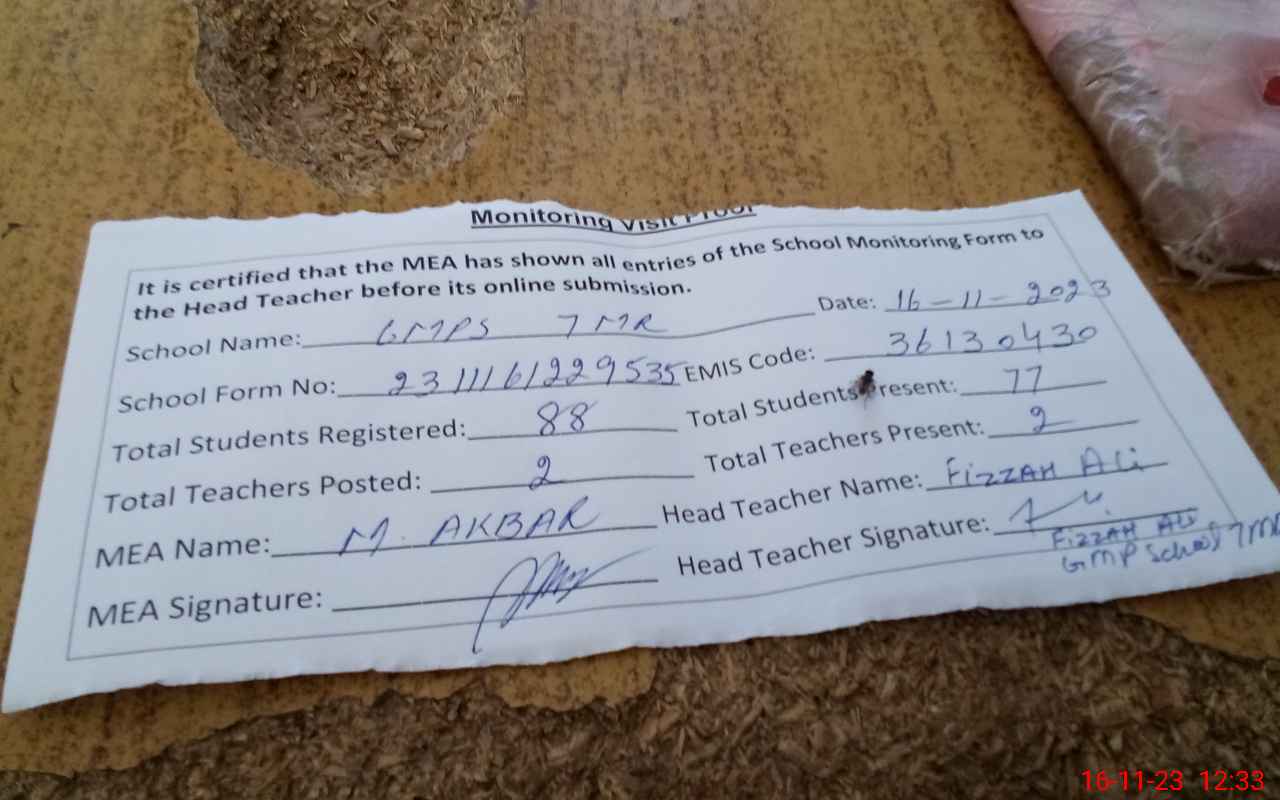 Monitoring Visit Proof
It is certified that the MEA has shown all entries of the School Monitoring Form to
the Head Teacher before its online submission.
School Name: GMPS 7MR Date: 16-11-2023
School Form No: 2311161229535 EMIS Code: 36130430
Total Students Registered: 88 Total Students Present: 77
Total Teachers Posted: 2 Total Teachers Present: 2
MEA Name: M. AKBAR Head Teacher Name: FIZZAH ALI
MEA Signature: Head Teacher Signature:
FIZZAH ALI
GMP School 7MR
16-11-23 12:33